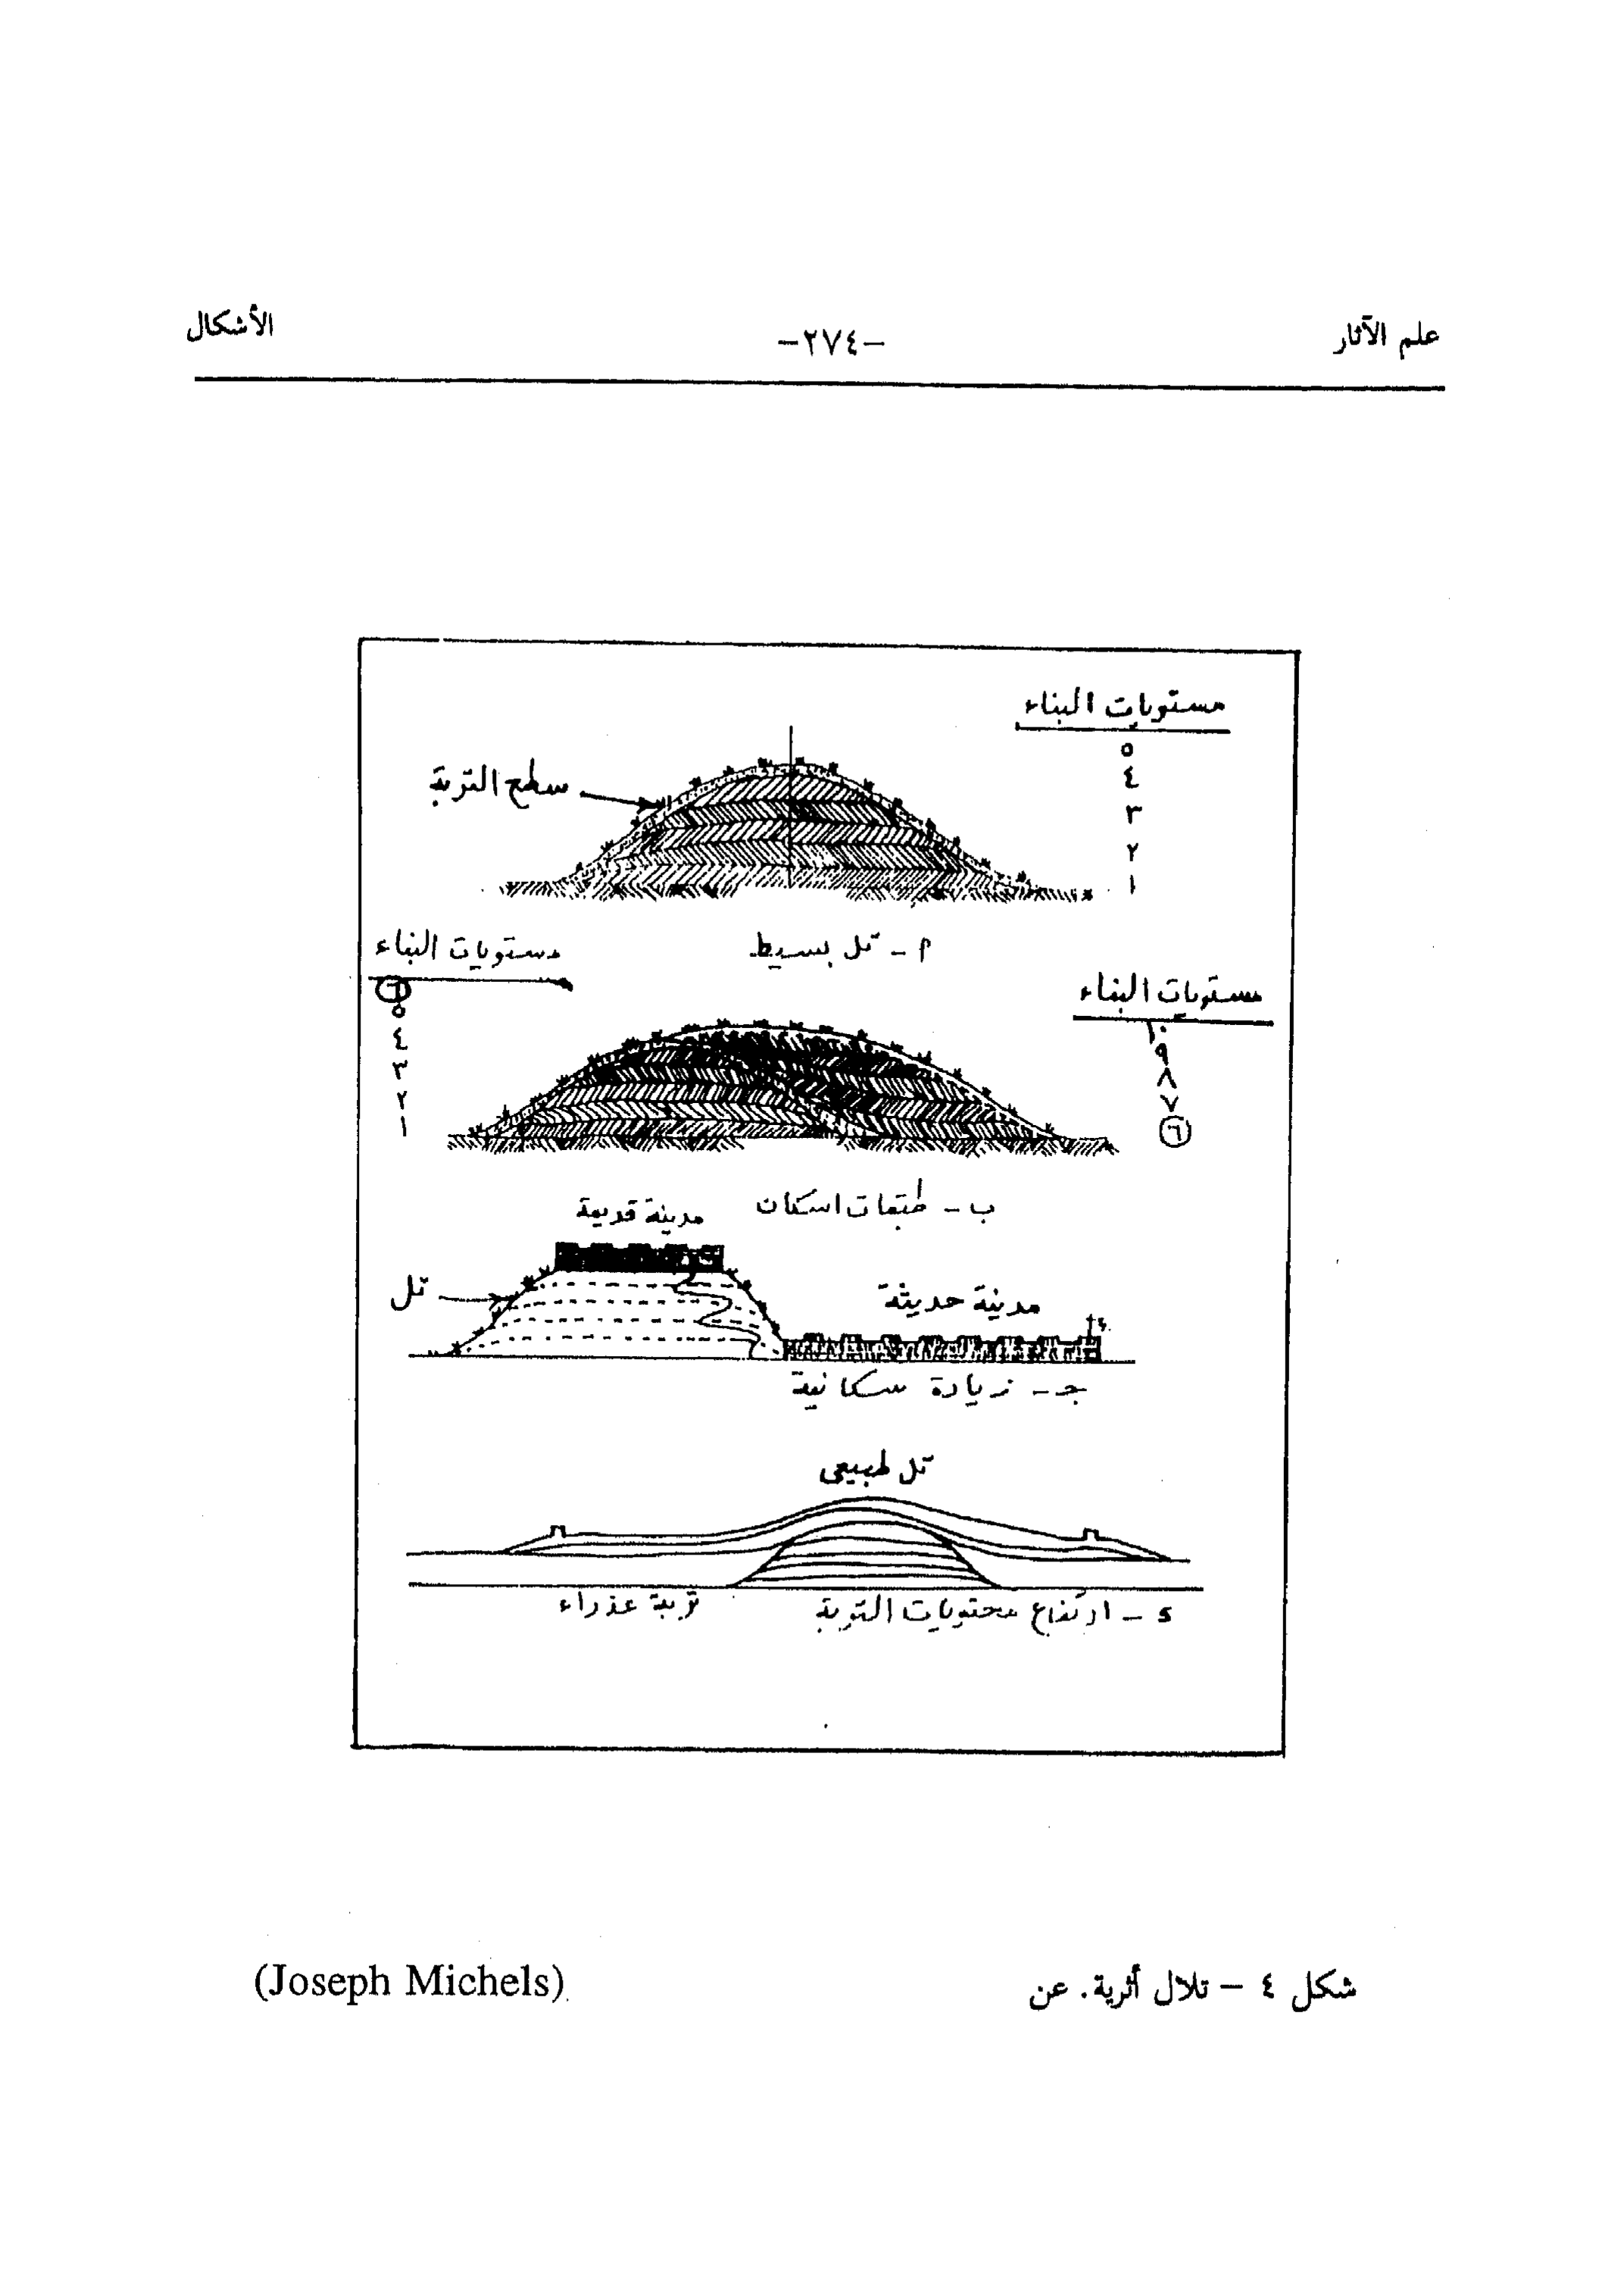 علم الآثار -٢٧٤- الأشكال
مستويات البناء
٥
٤
٣
٢
١
سطح التربة
أ - تل بسيط
مستويات البناء
١٠
٩
٨
٧
٦
مستويات البناء
٦
٥
٤
٣
٢
١
ب - طبقات اسكان
مدينة قديمة
تل
مدينة حديثة
جـ - زيادة سكانية
تل طبيعى
د - ارتفاع محتويات التربة
تربة عذراء
شكل ٤ - تلال أثرية. عن (Joseph Michels)